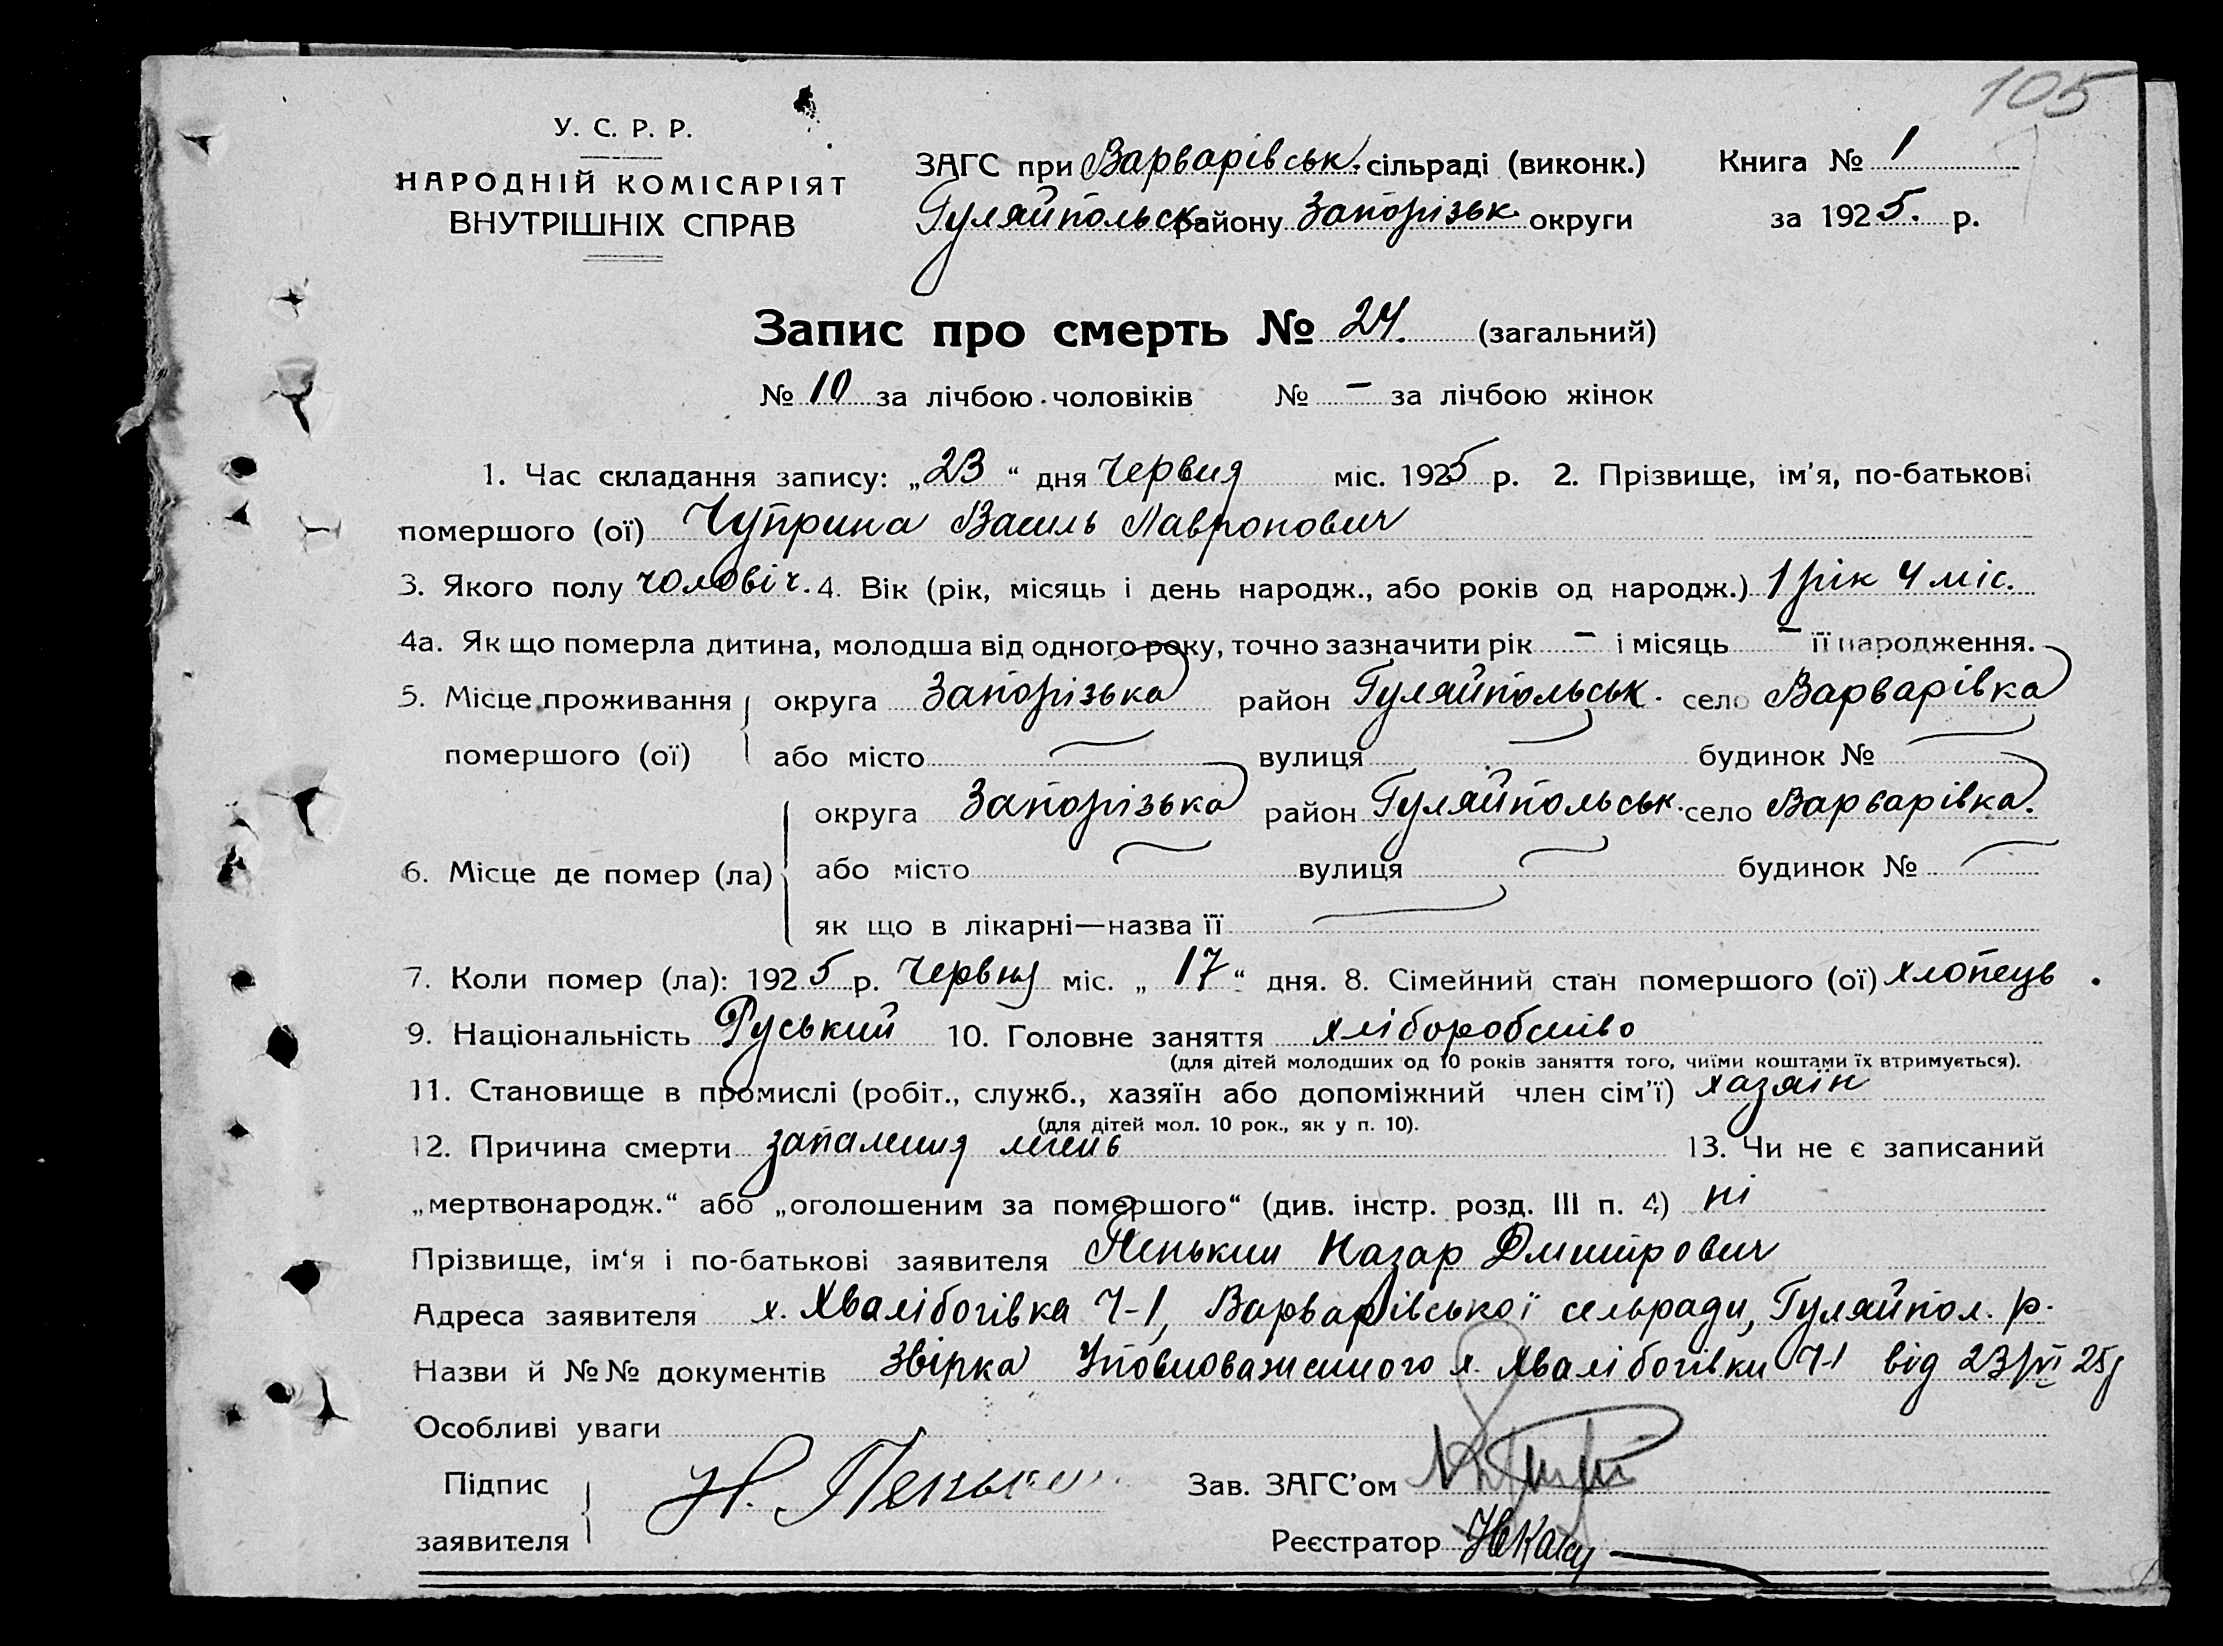 105
У. С. Р. Р.
НАРОДНІЙ КОМІСАРІЯТ
ВНУТРІШНІХ СПРАВ
ЗАГС при Варварівськ. сільраді (виконк.) Книга № 1
Гуляйпольськ району Запорізьк. округи за 1925. р.
Запис про смерть № 24. (загальний)
№ 10 за лічбою чоловіків № – за лічбою жінок
1. Час складання запису: „23“ дня Червня міс. 1925 р. 2. Прізвище, ім'я, по-батькові
помершого (ої) Чуприна Василь Лавронович
3. Якого полу чоловіч. 4. Вік (рік, місяць і день народж., або років од народж.) 1 рік 4 міс.
4а. Як що померла дитина, молодша від одного року, точно зазначити рік – і місяць – її народження.
5. Місце проживання округа Запорізька район Гуляйпольськ. село Варварівка
помершого (ої) або місто — вулиця — будинок № —
округа Запорізька район Гуляйпольськ. село Варварівка.
6. Місце де помер (ла) або місто — вулиця — будинок № —
як що в лікарні—назва її —
7. Коли помер (ла): 1925 р. Червня міс. „17“ дня. 8. Сімейний стан помершого (ої) хлопець
9. Національність Руський 10. Головне заняття хліборобство
(для дітей молодших од 10 років заняття того, чиїми коштами їх втримується).
11. Становище в промислі (робіт., служб., хазяїн або допоміжний член сім'ї) хазяїн
(для дітей мол. 10 рок., як у п. 10).
12. Причина смерти запалення легень 13. Чи не є записаний
„мертвонародж.“ або „оголошеним за помершого“ (див. інстр. розд. III п. 4) ні
Прізвище, ім'я і по-батькові заявителя Пенький Назар Дмитрович
Адреса заявителя х. Хвалібогівка Ч-1, Варварівської сельради, Гуляйпол. р.
Назви й №№ документів Звірка Уповноваженного х. Хвалібогівки Ч-1 від 23/VI 25 р
Особливі уваги
Підпис Н. Пеньки Зав. ЗАГС'ом
заявителя Реєстратор